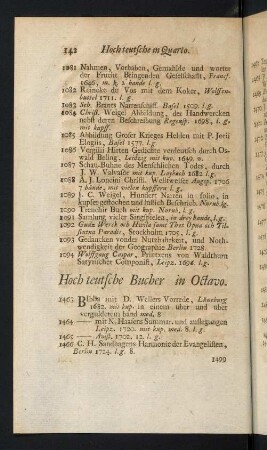 142 Hoch teutsche in Quarto.
1081 Nahmen, Vorhaben, Gemählde und wortte
der Frucht Bringenden Gesellschaft, Francf.
1646. m. k. 2 bande l. g.
1082 Reineke de Vos mit dem Koker, Wolffen-
buttel 1711. l. g.
1083 Seb. Brants Narrenschiff. Basel 1509. l. g.
1084 Christ. Weigel Abbildung, der Handwercken
nebst deren Beschreibung Regensp. 1698. l. g.
mit kupff.
1085 Abbildung Groser Krieges Helden mit P. Jovii
Elogiis, Basel 1577. l. g.
1086 Vergilii Hirten Gedichte verdeutsch durch Os-
wald Beling, Leidzig mit kup. 1649. w.
1087 Schau-Buhne des Menschlichen Todes, durch
J. W. Valvasor mit kup. Laybach 1682 l. g.
1088 A. J. Loncini Christl. Weltweiser Augsp. 1706
7 bande, mit vielen kupffern l. g.
1089 J. C. Weigel, Hundert Narren in folio, in
kupfer gestochen und lustich Beschryft Nornb. l. g.
1090 Trenchir Buch mit kup. Nornb, l. g.
1091
1092
Paradis, Stockholm 1705. l. g.
1093 Gedancken vonder Nutzbarkeit, und Noth-
wendigkeit der Geographie Berlin 1728.
1094 Wolffgang Caspar, Printzens von Waldthurn
Satyrischer Componist, Leipz. 1696. l. g.
Hoch teutsche Bucher in Octavo.
1463 Bibel mit D. Wellers Vorrede, Lüneburg
1682. mit kup. in einem uber und uber
verguldetem band med. 8
1464 —— mit N. Haasens Summar. und auslegungen
Leipz. 1720. mit kup. med. 8. l. g.
1465 —— 1702, 12. l. g.
1466 C. H. Sandhagens Harmonie der Evangelisten,
Berlin 1724. l. g. 8.